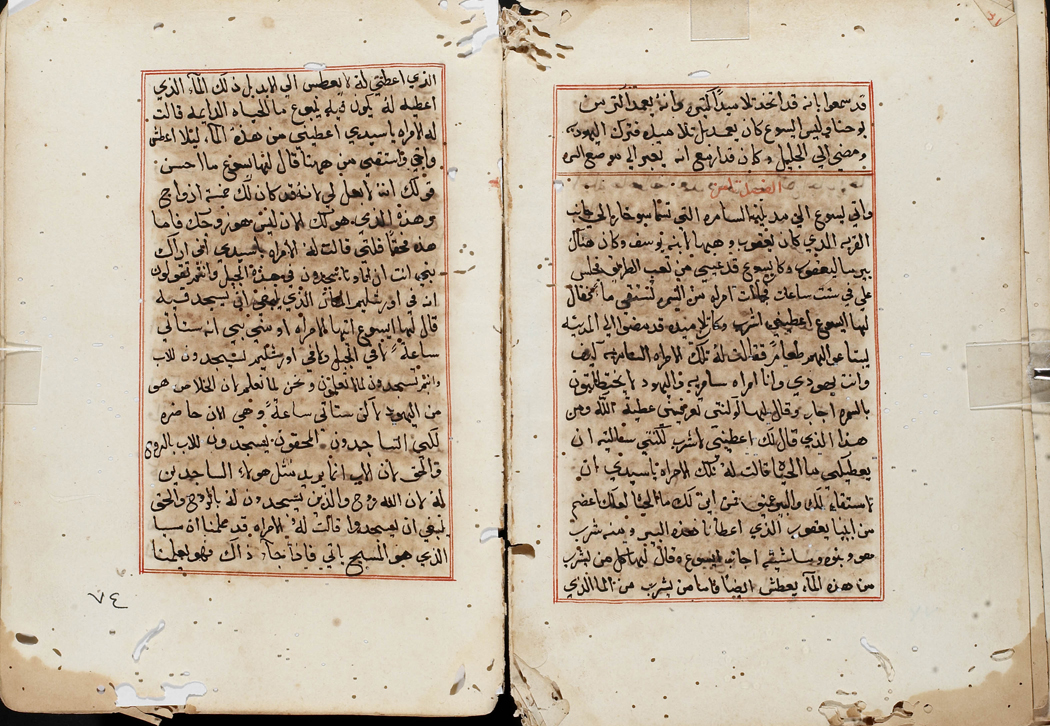 قد سمعوا بانه قد اتخذ تلاميذاً كثيره وانه يعمد اكثر من
يوحنا وليس ايسوع كان يعمد بل تلاميذه فترك اليهوديه
ومضى الي الجليل وكان قد ازمع انه يعبر الي موضع السامره
الفصل
واتي يسوع الي مدينة السامره التي تسما سوخار الي جانب
القريه الذي كان يعقوب وهبها لابنه يوسف وكان هناك
بير ما ليعقوب وكان يسوع قد عيي من تعب الطريق فجلس
علي في ست ساعات فجات امراه من السمره لتستقي ما فقال
لها ايسوع اعطيني اشرب وكان تلاميذه قد مضوا الي المدينه
يبتاعوا لهم طعاماً فقالت له تلك الامراه السامريه كيف
وانت يهودي وانا امراه سامريه واليهود لا يختلطون
بالسمره اجاب وقال ليها لو كنتي تعرفيني عطية الله ومن
هذا الذي قال لك اعطيني لاشرب لكنتي سالتيه ان
يعطيكي ما الحياه قالت له تلك الامراه ياسيدي ان
لا ستقاء لك والبير عميق فمن اين لك ما الحيا لعلك اعضم
من ابينا يعقوب الذي اعطانا هذه البير ومنه شرب
هو وبنوه وماشيته اجاب ايسوع وقال لها كل من يشرب
من هذه الماء يعطش ايضاً فاما من يشرب من الما الذي
الذي اعطي له لا يعطش الي الابد بل ذلك الماء الذي
اعطيه له يكون فيه ينبوع ما للحياه الدايمه قالت
له الامراه ياسيدي اعطيني من هذه الماء ليلا اعطش
واجي واستقي من ههنا قال لها يسوع ما احسن
قولك انه لا بعل لي لانه قد كان لك خمسة ازواج
وهذه الذي هو لك الان ليس هو زوجك فاما
هذه محقاً قلتي قالت له الامراه ياسيدي اني اراك
نبي انت ان اباونا سجدون في هذه الجبل وانتم تقولون
ان في اورشليم المكان الذي ينبغي ان يسجد فيه
قال لها ايسوع ايتها الامراه امني بي انه ستاتي
ساعة لا في الجبل ولا في اورشليم يسجدون للاب
وانتم تسجدون لما لا تعلمون ونحن لما نعلم لان الخلاص هو
من اليهود لاكن ستاتي ساعة وهي الان حاضره
لكي الساجدون المحقون يسجدون للاب بالروح
والحق لان الاب انما يريد مثل هولاء الساجدين
له لان الله روح والذين يسجدون له بالروح والحق
ينبغي ان يسجدوا قالت له الامراه قد علمنا ان مسيا
الذي هو المسيح ياتي فاذا جاء ذاك فهو يعلمنا
٧٤